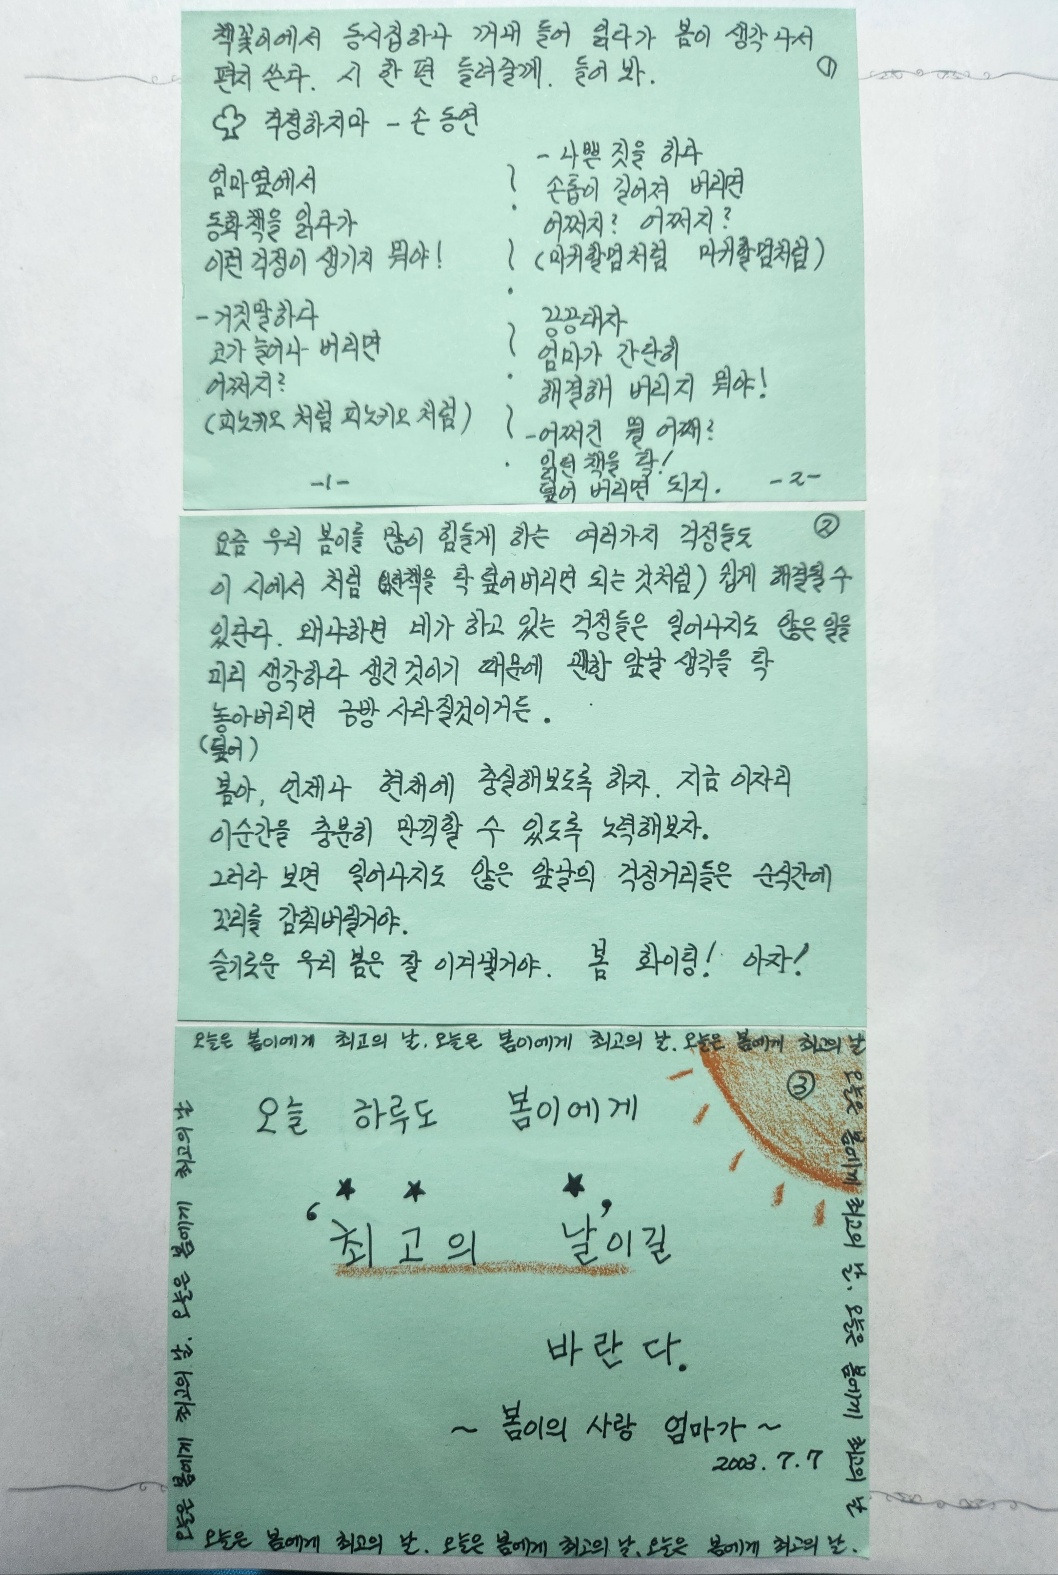 책꽂이에서 동시집하나 꺼내 들어 읽다가 봄이 생각나서
편지 쓴다. 시 한 편 들려줄께. 들어 봐.
①
걱정하지마 - 손동연
엄마옆에서
동화책을 읽다가
이런 걱정이 생기지 뭐야!
- 거짓말하다
코가 늘어나 버리면
어쩌지?
(피노키오 처럼 피노키오 처럼)
-1-
- 나쁜 짓을 하다
손톱이 길어져 버리면
어쩌지? 어쩌지?
(마귀할멈처럼 마귀할멈처럼)
끙끙대자
엄마가 간단히
해결해 버리지 뭐야!
- 어쩌긴 뭘 어째?
읽던 책을 탁!
덮어 버리면 되지.
-2-
②
요즘 우리 봄이를 많이 힘들게 하는 여러가지 걱정들도
이 시에서 처럼 책을 탁 덮어버리면 되는 것처럼) 쉽게 해결될 수
있단다. 왜냐하면 네가 하고 있는 걱정들은 일어나지도 않은 일을
미리 생각하다 생긴것이기 때문에 괜한 앞날 생각을 탁
놓아버리면 금방 사라질것이거든.
(덮어)
봄아, 언제나 현재에 충실해보도록 하자. 지금 이자리
이순간을 충분히 만끽할 수 있도록 노력해보자.
그러다 보면 일어나지도 않은 앞날의 걱정거리들은 순식간에
꼬리를 감춰버릴거야.
슬기로운 우리 봄은 잘 이겨낼거야. 봄 화이팅! 아자!
오늘은 봄이에게 최고의 날. 오늘은 봄이에게 최고의 날. 오늘은 봄에게 최고의 날
③
오늘 하루도 봄이에게
'최고의 날'이길
바란다.
~ 봄이의 사랑 엄마가 ~
2003. 7. 7
오늘은 봄에게 최고의 날. 오늘은 봄에게 최고의 날
오늘은 봄에게 최고의 날. 오늘은 봄에게 최고의 날. 오늘은 봄에게 최고의 날.